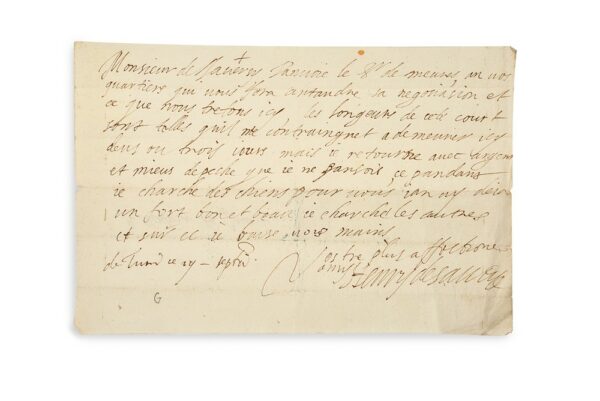 Monsieur de J'anvoie le Sr de meures an vos
quartiers qui vous fera antandre sa negotiasion et
ce que nous fesons isy les longeurs de cete court
sont telles quil me contraingnet a demeurer isy
deus ou trois iours mais ie retourne avec argent
et mieus depeche que ie ne pansois ce pandant
ie charche des chiens pour vous ian ay desia
un fort bon et beau ie charche les autres
et sur ce ie baise vos mains
de Turin ce 29
Vostre plus affectione
amis
Henry de Savoye
G